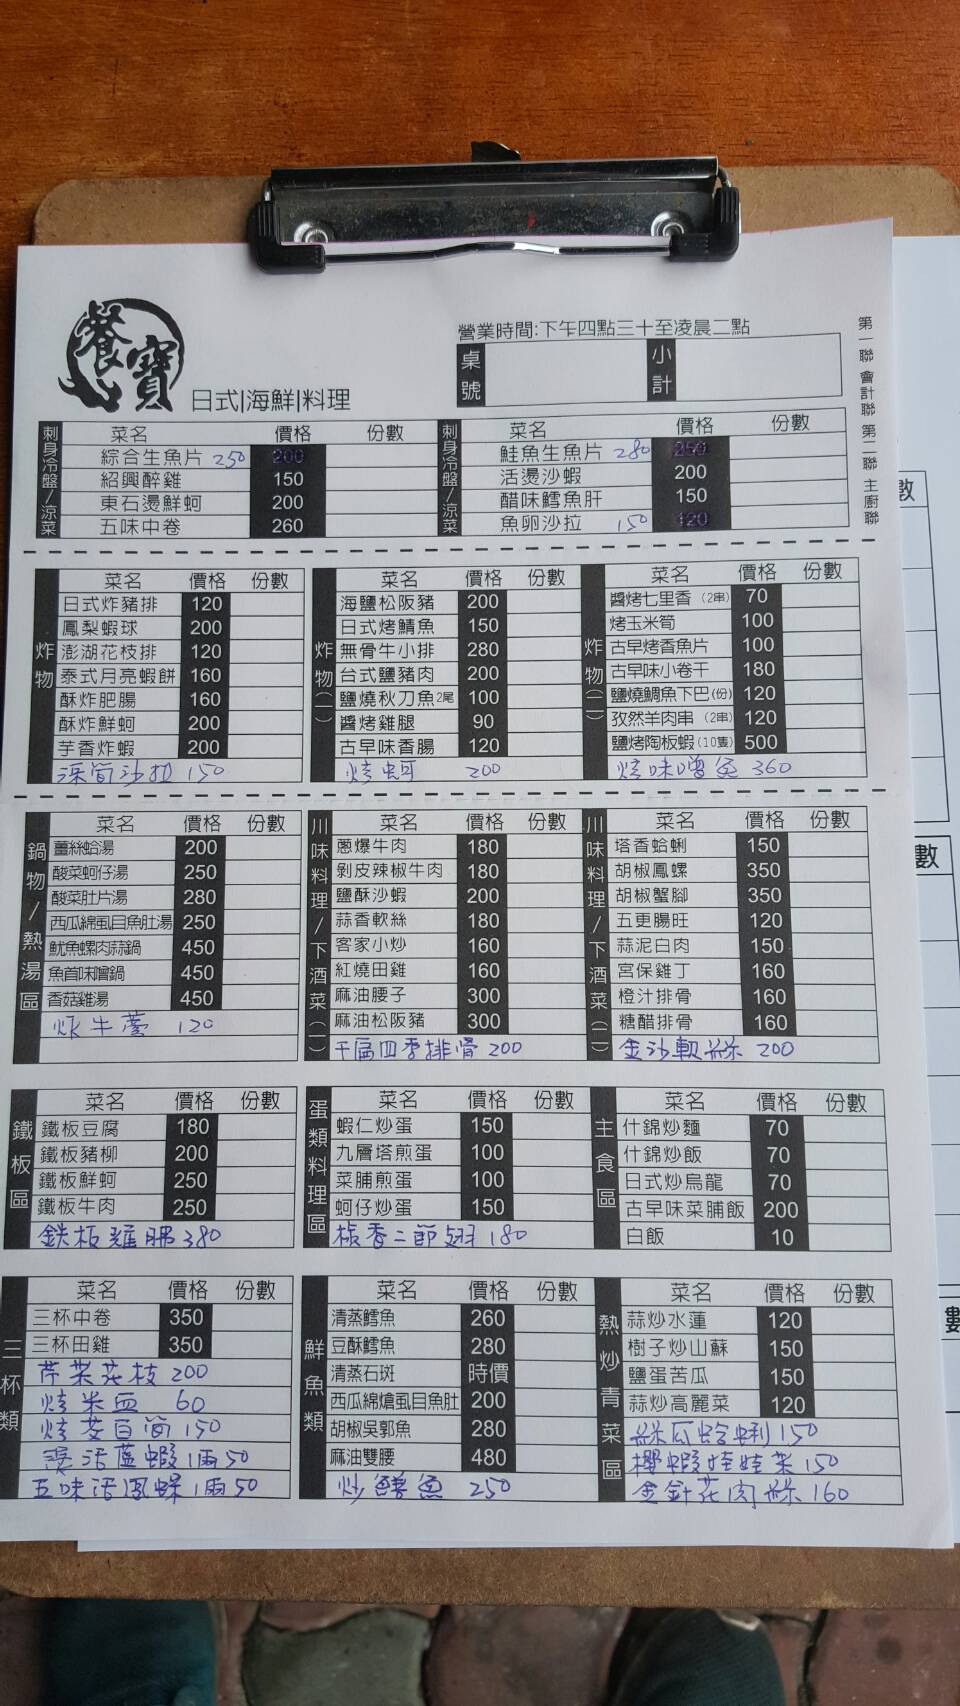 饗寶
日式|海鮮|料理
營業時間:下午四點三十至凌晨二點
桌號
小計
第一聯 會計聯 第二聯 主廚聯
刺身冷盤/涼菜
菜名 價格 份數
綜合生魚片 250 200
紹興醉雞 150
東石燙鮮蚵 200
五味中卷 260
刺身冷盤/涼菜
菜名 價格 份數
鮭魚生魚片 280 250
活燙沙蝦 200
醋味鱈魚肝 150
魚卵沙拉 150 120
炸物
菜名 價格 份數
日式炸豬排 120
鳳梨蝦球 200
澎湖花枝排 120
泰式月亮蝦餅 160
酥炸肥腸 160
酥炸鮮蚵 200
芋香炸蝦 200
深筍沙拉 150
炸物(一)
菜名 價格 份數
海鹽松阪豬 200
日式烤鯖魚 150
無骨牛小排 280
台式鹽豬肉 200
鹽燒秋刀魚2尾 100
醬烤雞腿 90
古早味香腸 120
烤蚵 200
炸物(二)
菜名 價格 份數
醬烤七里香(2串) 70
烤玉米筍 100
古早烤香魚片 100
古早味小卷干 180
鹽燒鯛魚下巴(份) 120
孜然羊肉串(2串) 120
鹽烤陶板蝦(10隻) 500
烤味噌魚 360
鍋物/熱湯區
菜名 價格 份數
薑絲蛤湯 200
酸菜蚵仔湯 250
酸菜肚片湯 280
西瓜綿虱目魚肚湯 250
魷魚螺肉蒜鍋 450
魚首味噌鍋 450
香菇雞湯 450
炸牛蒡 120
川味料理/下酒菜(一)
菜名 價格 份數
蔥爆牛肉 180
剝皮辣椒牛肉 180
鹽酥沙蝦 200
蒜香軟絲 180
客家小炒 160
紅燒田雞 160
麻油腰子 300
麻油松阪豬 300
干扁四季排骨 200
川味料理/下酒菜(二)
菜名 價格 份數
塔香蛤蜊 150
胡椒鳳螺 350
胡椒蟹腳 350
五更腸旺 120
蒜泥白肉 150
宮保雞丁 160
橙汁排骨 160
糖醋排骨 160
金沙軟絲 200
鐵板區
菜名 價格 份數
鐵板豆腐 180
鐵板豬柳 200
鐵板鮮蚵 250
鐵板牛肉 250
鉄板 380
蛋類料理區
菜名 價格 份數
蝦仁炒蛋 150
九層塔煎蛋 100
菜脯煎蛋 100
蚵仔炒蛋 150
椒香二節翅 180
主食區
菜名 價格 份數
什錦炒麵 70
什錦炒飯 70
日式炒烏龍 70
古早味菜脯飯 200
白飯 10
三杯類
菜名 價格 份數
三杯中卷 350
三杯田雞 350
芹菜花枝 200
烤米血 60
烤茭白筍 150
燙活蘆蝦 1兩50
五味活鳳螺 1兩50
鮮魚類
菜名 價格 份數
清蒸鱈魚 260
豆酥鱈魚 280
清蒸石斑 時價
西瓜綿熗虱目魚肚 200
胡椒吳郭魚 280
麻油雙腰 480
炒鱔魚 250
熱炒青菜區
菜名 價格 份數
蒜炒水蓮 120
樹子炒山蘇 150
鹽蛋苦瓜 150
蒜炒高麗菜 120
絲瓜蛤蜊 150
櫻蝦娃娃菜 150
金針花肉絲 160
數
數
數